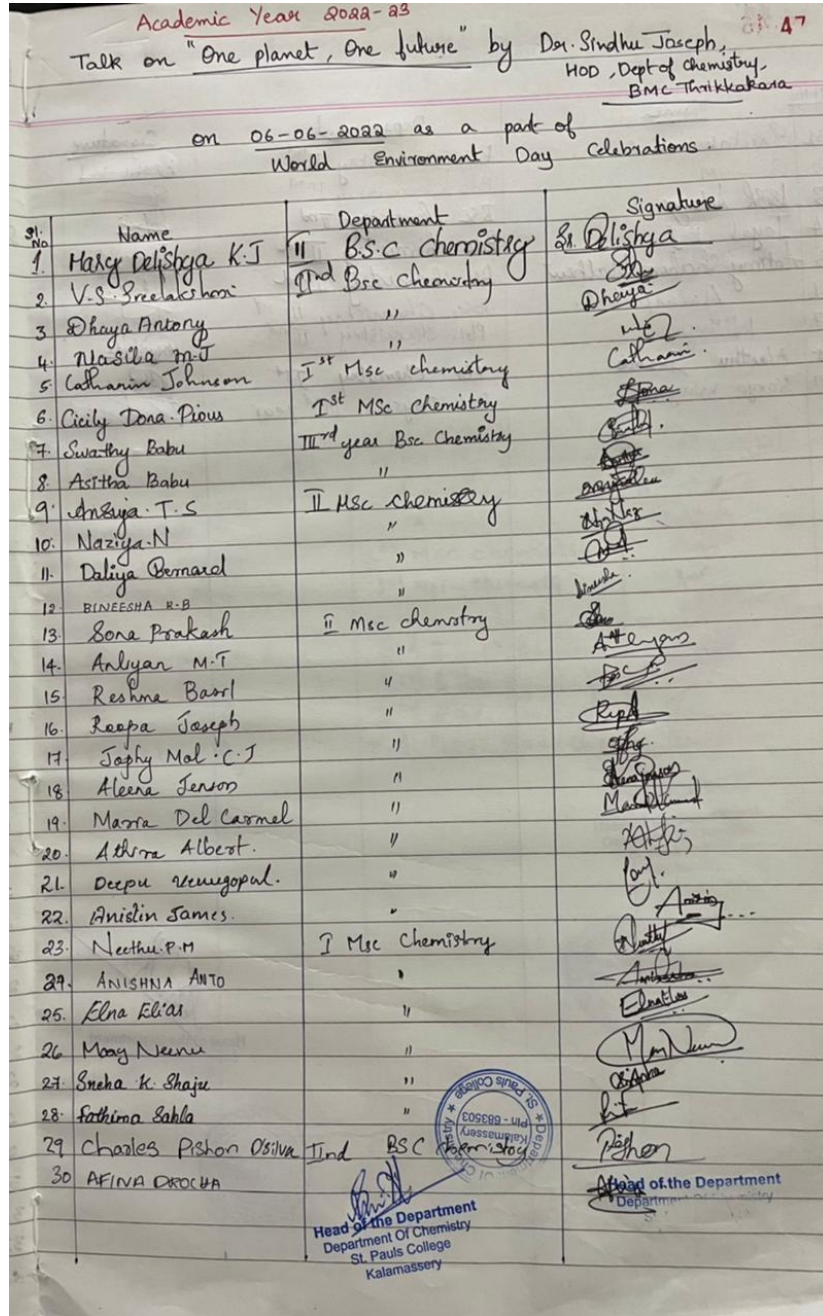 Academic Year 2022-23
47
Talk on "One planet, One future" by Dr. Sindhu Joseph,
HOD, Dept of Chemistry,
BMC Thrikkakara
on 06-06-2022 as a part of
World Environment Day Celebrations.
Sl. No Name Department Signature
1. Mary Delishya K.J II B.S.C chemistry Sr. Delishya
2. V.S. Sreelakshmi IInd Bsc chemistry
3 Dhaya Antony " Dhaya
4. Nasila M.J "
5. Catharin Johnson Ist Msc chemistry Catharin.
6. Cicily Dona Pious Ist MSc Chemistry Dona
7. Swathy Babu IIIrd year Bsc Chemistry
8. Asitha Babu "
9. Ansuja. T. S II Msc chemistry
10. Naziya. N "
11. Daliya Bernard "
12 BINEESHA R.B " Bineesha
13. Sona Prakash II Msc chemistry
14. Anlyan M.T "
15 Reshma Basil "
16. Roopa Joseph "
17 Jophy Mol. C. J "
18 Aleena Jenson "
19. Maria Del Carmel "
20. Athira Albert. "
21. Deepu Venugopal. "
22. Anislin James. "
23. Neethu. P. M I Msc Chemistry
24. ANISHNA ANTO "
25. Elna Elias "
26 Mary Neenu " Mary Neenu
27. Sneha K. Shaju "
28. Fathima Sahla "
29 Charles Pishon D'silva IInd BSC chemistry Pishon
30 AFINA DROCHA
Department Of Chemistry
St. Pauls College
Kalamassery
Pin - 683503
Head of the Department
Department Of Chemistry
St. Pauls College
Kalamassery
Head of the Department
Department